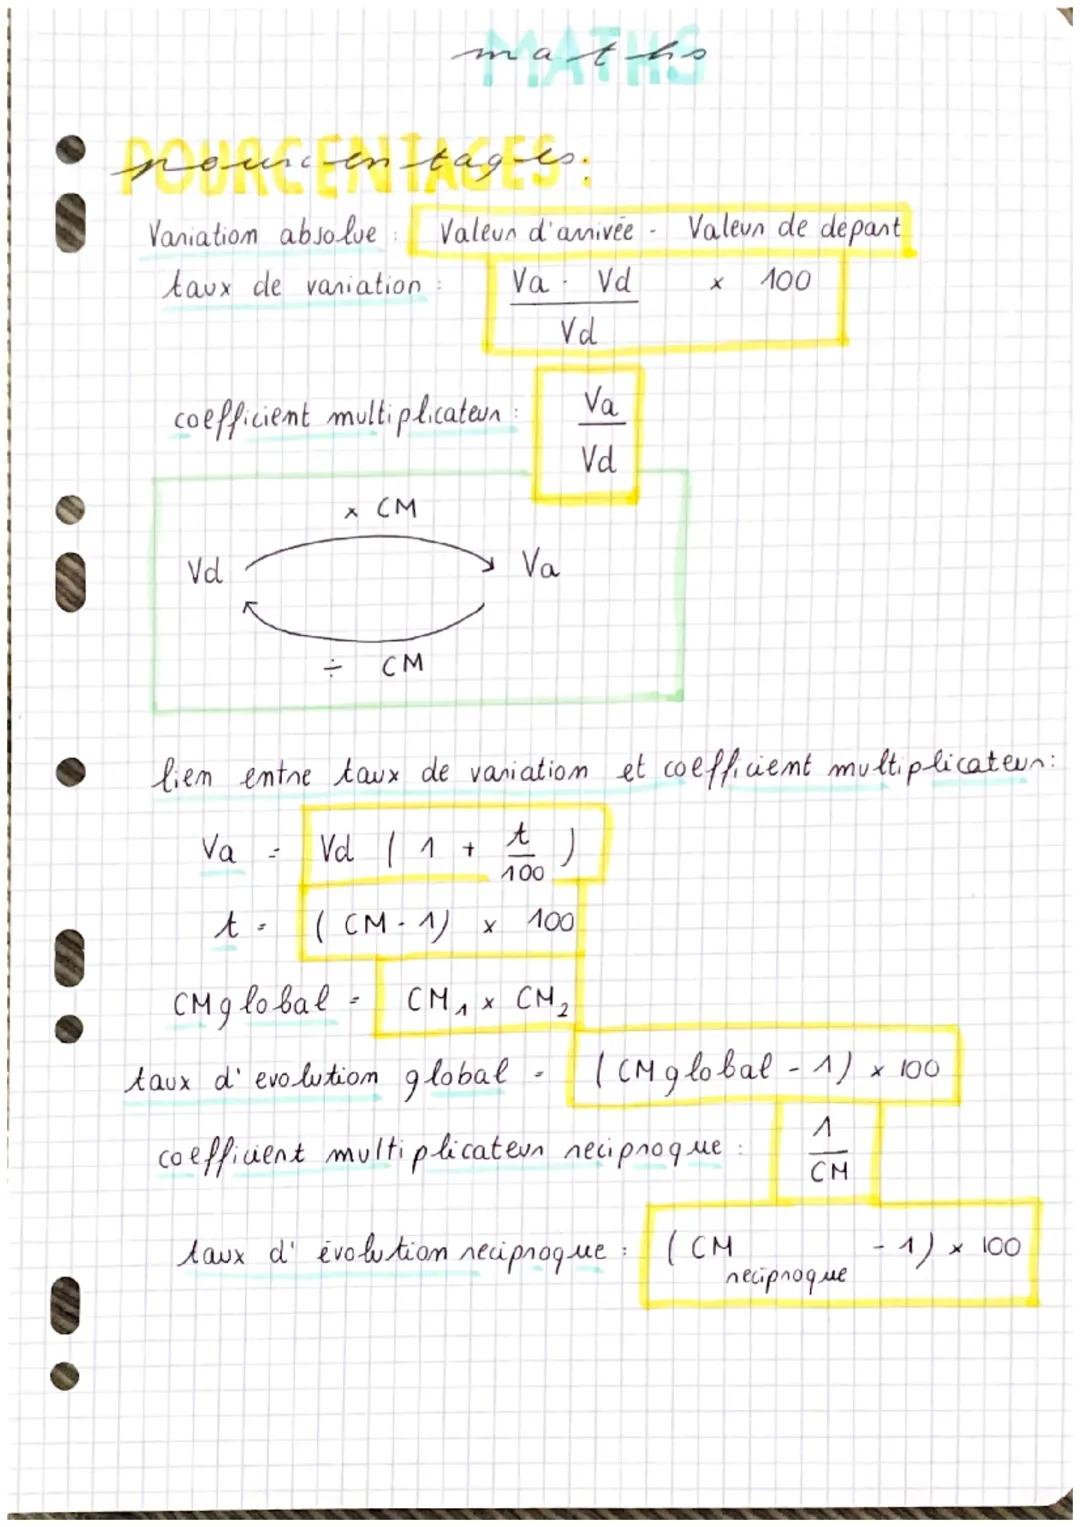 maths
MATHS
pourcentages:
POURCENTAGES:
Variation absolue : Valeur d'arrivée - Valeur de départ
taux de variation : Va - Vd × 100
Vd
coefficient multiplicateur : Va
Vd
× CM
Vd Va
÷ CM
lien entre taux de variation et coefficient multiplicateur :
Va = Vd ( 1 + t )
100
t = ( CM - 1) × 100
CMglobal = CM₁ × CM₂
taux d'evolution global = ( CMglobal - 1) × 100
coefficient multiplicateur reciproque : 1
CM
taux d'évolution reciproque : ( CM - 1) × 100
reciproque